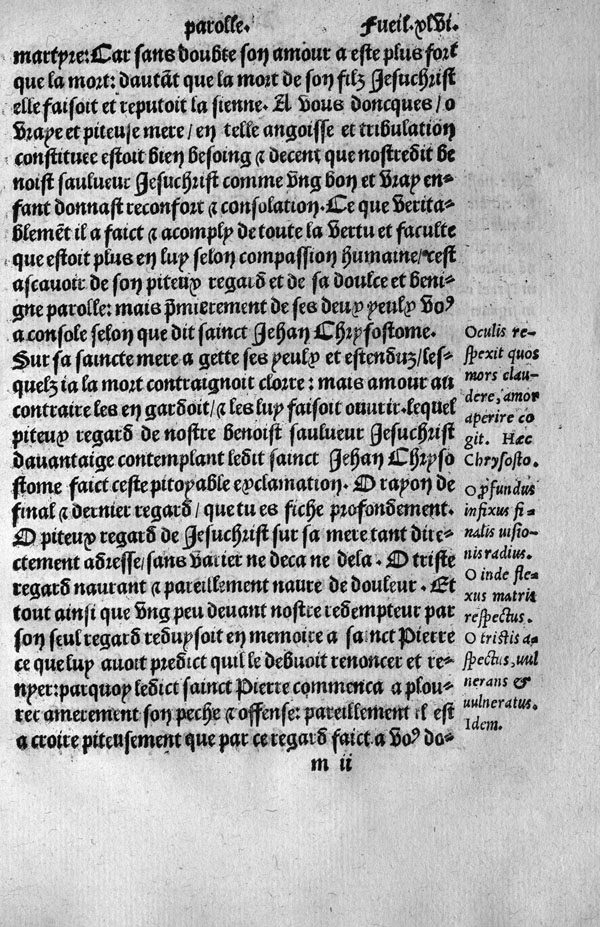 parolle. Fueil. xlvi.
martyre: Car sans doubte son amour a este plus fort
que la mort: dautāt que la mort de son filz Jesuchrist
elle faisoit et reputoit la sienne. A vous doncques/ o
vraye et piteuse mere/ en telle angoisse et tribulation
constituee estoit bien besoing ⁊ decent que nostredit be
noist saulueur Jesuchrist comme vng bon et vray en-
fant donnast reconfort ⁊ consolation. Ce que verita-
blemēt il a faict ⁊ acomply de toute la vertu et faculte
que estoit plus en luy selon compassion humaine/ cest
ascavoir de son piteux regard et de sa doulce et beni-
gne parolle: mais p̄mierement de ses deux yeulx voꝰ
a console selon que dit sainct Jehan Chrysostome.
Sur sa saincte mere a gette ses yeulx et estenduz/ les-
quelz ia la mort contraignoit clorre: mais amour au
contraire les en gardoit/ ⁊ les luy faisoit ouvrir. lequel
piteux regard de nostre benoist saulueur Jesuchrist
davantaige contemplant ledit sainct Jehan Chryso
stome faict ceste pitoyable exclamation. O rayon de
final ⁊ dernier regard/ que tu es fiche profondement.
O piteux regard de Jesuchrist sur sa mere tant dire-
ctement adresse/ sans varier ne deca ne dela. O triste
regard naurant ⁊ pareillement naure de douleur. Et
tout ainsi que vng peu devant nostre redempteur par
son seul regard reduysoit en memoire a sainct Pierre
ce que luy avoit predict quil le debuoit renoncer et re-
nyer: parquoy ledict sainct Pierre commenca a plou-
rer amerement son peche ⁊ offense: pareillement il est
a croire piteusement que par ce regard faict a voꝰ do-
m ii
Oculis re-
spexit quos
mors clau-
dere, amor
aperire co
git. Hæc
Chrysosto.
O p̄fundus
infixus fi-
nalis uisio-
nis radius.
O inde fle-
xus matris
respectus.
O tristis a-
spectus, uul
nerans &
uulneratus.
Idem.